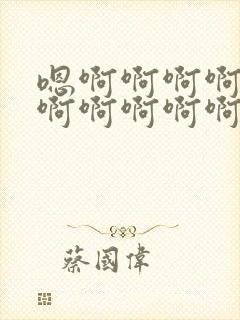 嗯啊啊啊啊
啊啊啊啊啊
蔡國偉